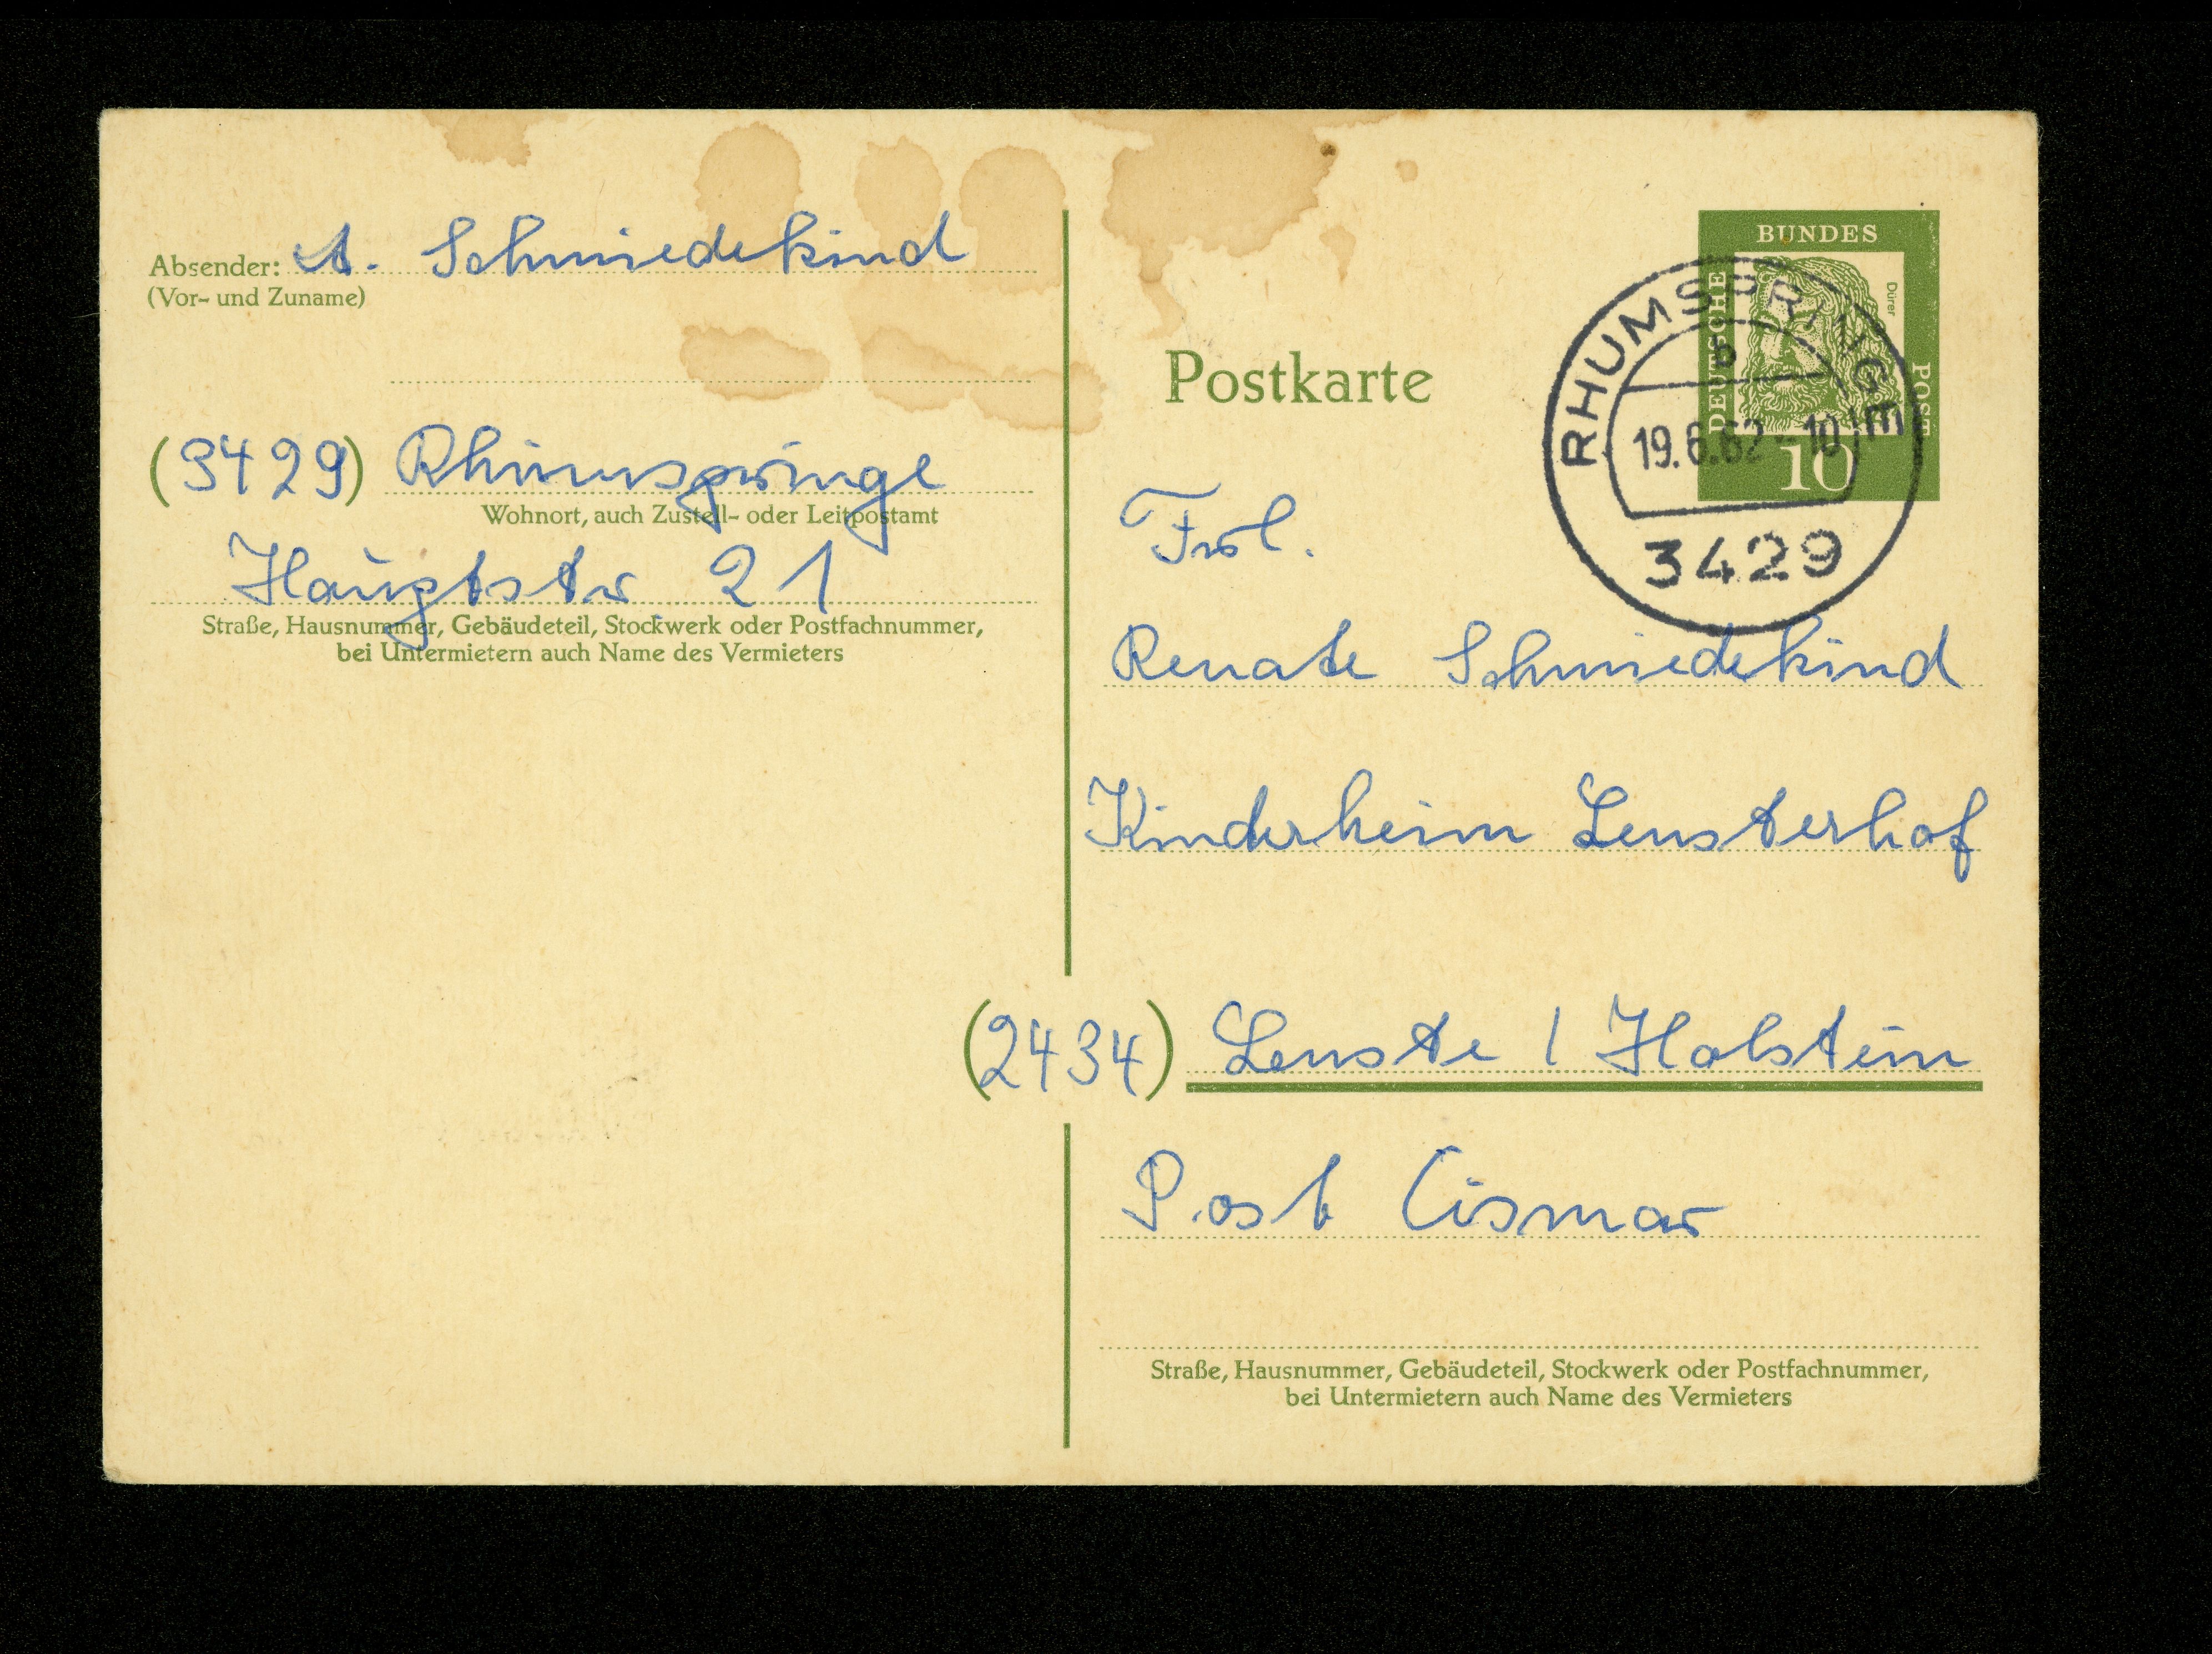 Absender: A. Schmiedekind
(Vor- und Zuname)
(3429) Rhumspringe
Wohnort, auch Zustell- oder Leitpostamt
Hauptstr 21
Straße, Hausnummer, Gebäudeteil, Stockwerk oder Postfachnummer,
bei Untermietern auch Name des Vermieters
Postkarte
BUNDES
DEUTSCHE
POST
Dürer
10
RHUMSPRINGE
b
19.6.62-10
3429
Frl.
Renate Schmiedekind
Kinderheim Lensterhof
(2434) Lenste / Holstein
Post Cismar
Straße, Hausnummer, Gebäudeteil, Stockwerk oder Postfachnummer,
bei Untermietern auch Name des Vermieters